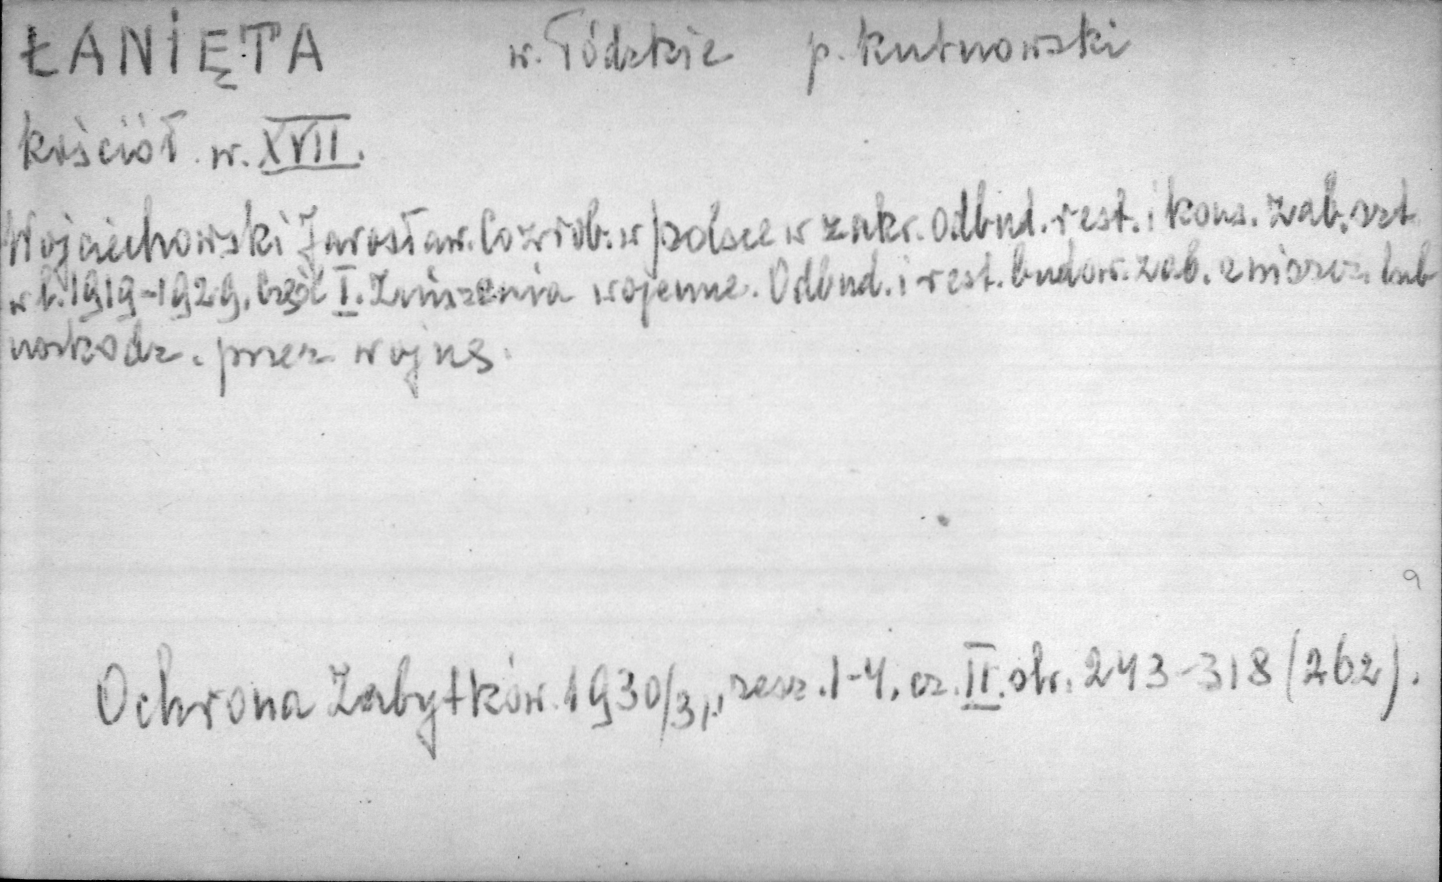 ŁANIĘTA w. Łódzkie p. kutnowski
kościół w. XVII.
Wojciechowski Jarosław. Co zrob. w Polsce w zakr. odbud. rest. i kons. zab. szt.
w l. 1919-1929. Część I. Zniszczenia wojenne. Odbud. i rest. budow. zab. zniszcz. lub
uszkodz. przez wojnę.
9
Ochrona Zabytków. 1930/31, zesz. 1-4, cz. II. str. 243-318 (262).